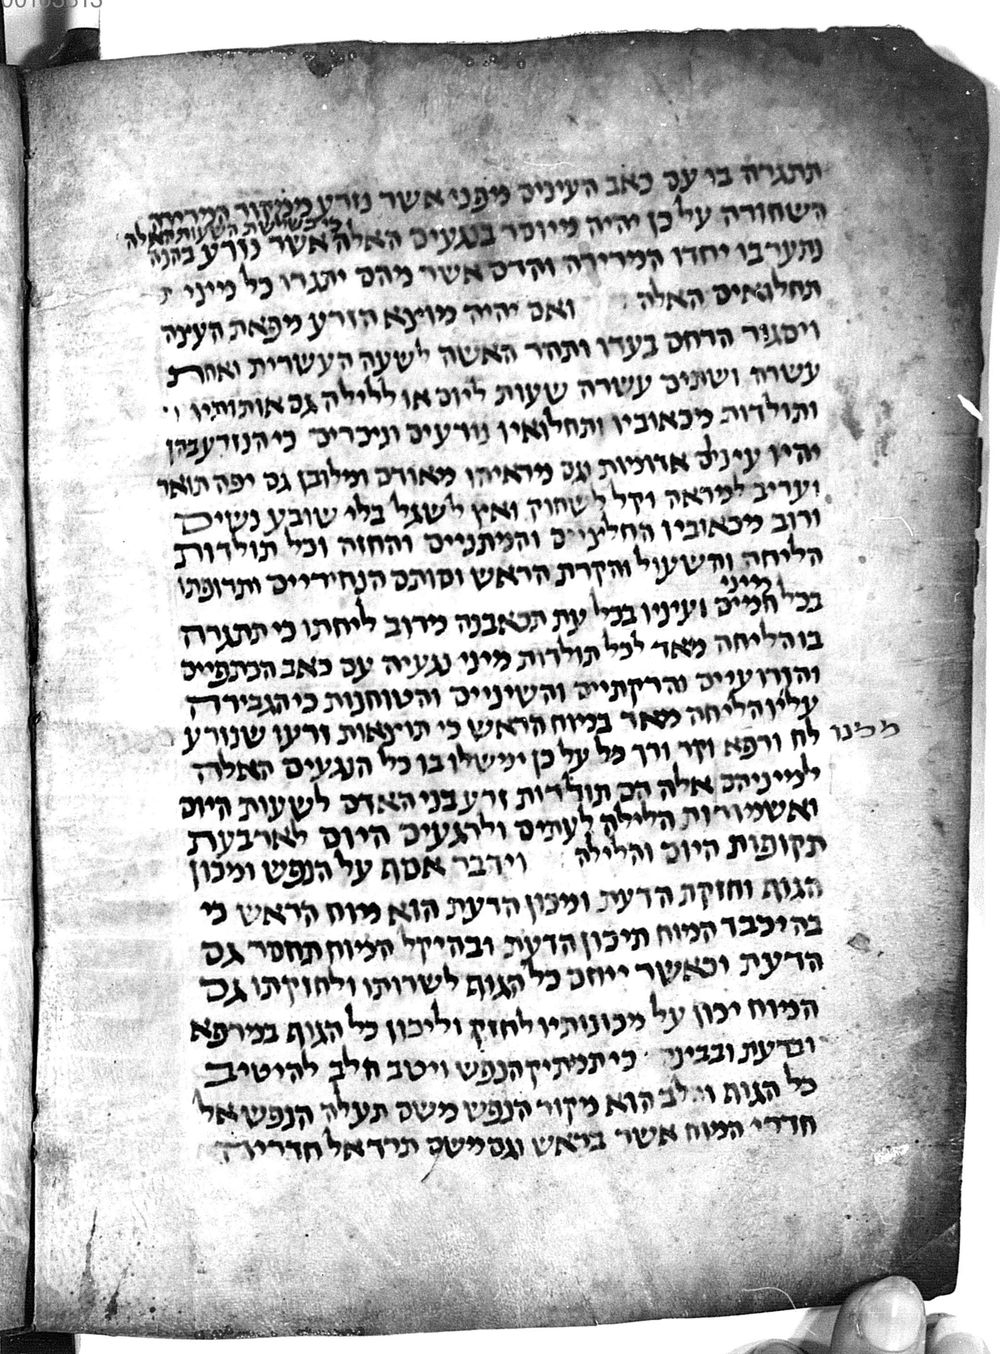 תתגרה בו עם כאב העינים מפני אשר נזרע ממקור המרירה
השחורה על כן יהיה מיוסר בנגעים האלה אשר נזרע בהנה
כי בשלשת השעות האלה
נתערבו יחדו המרירה והדם אשר מהם יתגרו כל מיני
תחלואים האלה ואם יהיה מוצא הזרע מפאת העינה
ויסגור הרחם בעדו ותהר האשה לשעה העשרית ואחת
עשרה ושתים עשרה שעות ליום או ללילה גם אותותיו
ותולדות מכאוביו ותחלואיו נודעים וניכרים כי הנזרע בהן
יהיו עיניו אדומות וגם מראיהו מאודם ומלובן גם יפה תואר
ועריב למראה וקל לשחוק ואץ לשגל בלי שובע נשים
ורוב מכאוביו החלציים והמתניים והחזה וכל תולדות
הליחה והשעול והקרת הראש וסותם הנחידיים ותרופתו
מיני
בכל חמים ועיניו בכל עת תכאבנה מרוב ליחתו כי תתגרה
בו הליחה מאד לכל תולדות מיני נגעיה עם כאב הכתפיים
והזרועיים והרקתיים והשיניים והטוחנות כי הגבירה
עליו הליחה מאד במוח הראש כי תוצאות זרעו שנזרע
לח ורפא וקר ורך כל על כן ימשלו בו כל הנגעים האלה
למייניהם אלה הם תולדות זרע בני האדם לשעות היום
ואשמורות הלילה לעתים ולרגעים היום לארבעת
תקופות היום והלילה וידבר אסף על הנפש ומכון
הגוף וחזקת הדעת ומכון הדעת הוא מוח הראש כי
בהיכבד המוח תיכון הדעת ובהיקל המוח תחסר גם
הדעת וכאשר ייחם כל הגוף לשרותו ולחזקתו גם
המוח יכון על מכונותיו לחזק וליכון כל הגוף במרפא
ובדעת ובביני כי תמתיק הנפש ויטב חלב להיטיב
כל הגוף והלב הוא מקור הנפש משם תעלה הנפש אל
חדרי המוח אשר בראש וגם משם תרד אל חדריה